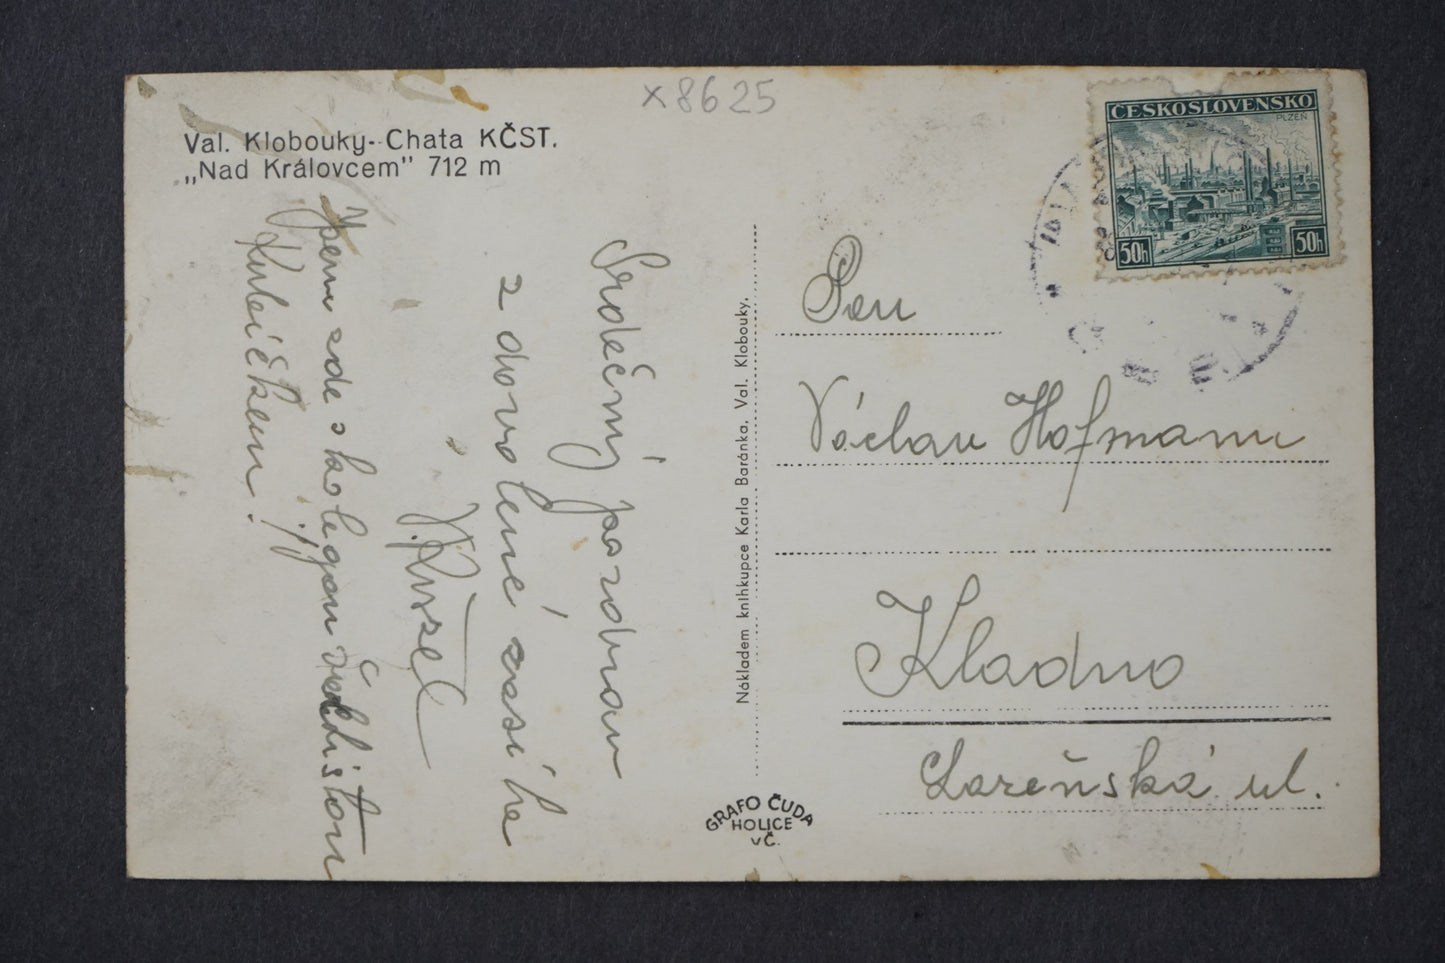 x8625
Val. Klobouky--Chata KČST.
„Nad Královcem" 712 m
Srdečný pozdrav
z dovolené zasílá
Jsem zde s kolegou
Nákladem knihkupce Karla Baránka, Val. Klobouky.
GRAFO ČUDA
HOLICE
v Č.
ČESKOSLOVENSKO
PLZEŇ
50h 50h
Pan
Václav Hofmann
Kladno
ul.